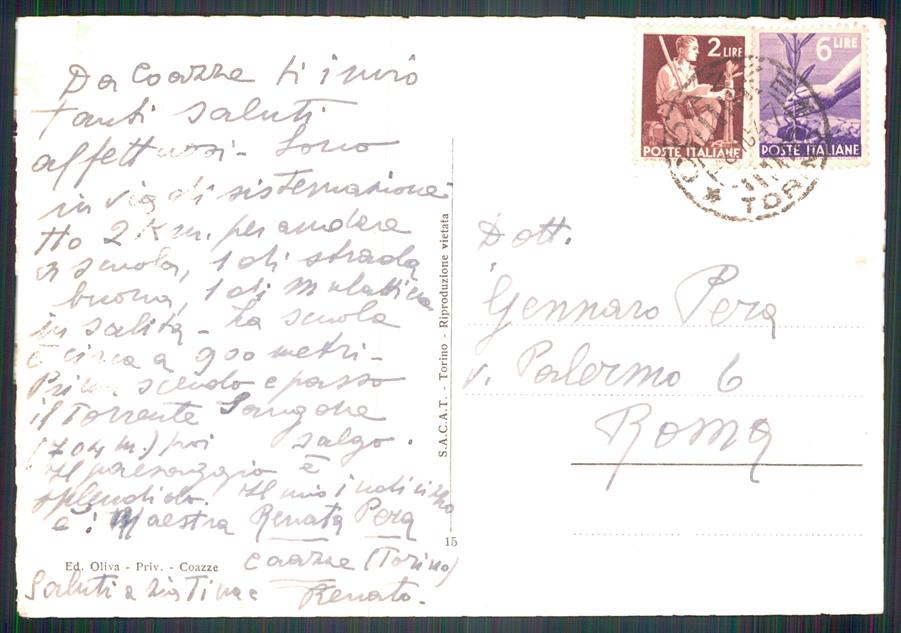 2 LIRE
POSTE ITALIANE
6 LIRE
POSTE ITALIANE
TORINO
Da Coazze ti invio
tanti saluti
affettuosi - Sono
in via di sistemazione
Ho 2 Km. per andare
a scuola, 1 di strada
buona, 1 di mulattiera
in salita - La scuola
è circa a 900 metri -
Prima scendo e passo
il Torrente Sangone
(704 m.) poi salgo.
Il paesaggio è
splendido. Il mio indirizzo
è: Maestra Renata Pera
Coazze (Torino)
Saluti a zia Tina e Renato.
Ed. Oliva - Priv. - Coazze
S.A.C.A.T. - Torino - Riproduzione vietata
15
Dott.
Gennaro Pera
v. Palermo 6
Roma